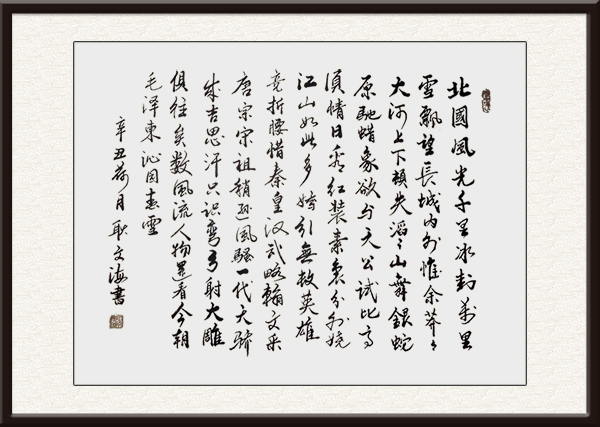 北國風光千里冰封萬里
雪飄望長城内外惟余莽々
大河上下頓失滔々山舞銀蛇
原馳蜡象欲与天公試比高
須晴日看红装素裹分外娆
江山如此多娇引無数英雄
竞折腰惜秦皇汉武略輸文采
唐宗宋祖稍逊風騷一代天骄
成吉思汗只识彎弓射大雕
俱往矣数風流人物還看今朝
毛泽東沁园春雪
辛丑荷月耿文海書